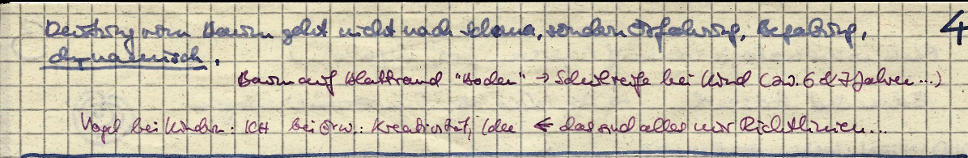 Deutung vom Baum geht nicht nach Schema, sondern Erfahrung, Begabung, 4
dynamisch.
Baum auf Blattrand "Boden" → Schulreife bei Kind (zw. 6 & 7 Jahren...)
Vogel bei Kindern: ICH bei Erw.: Kreativität, Idee ← das sind alles nur Richtlinien...